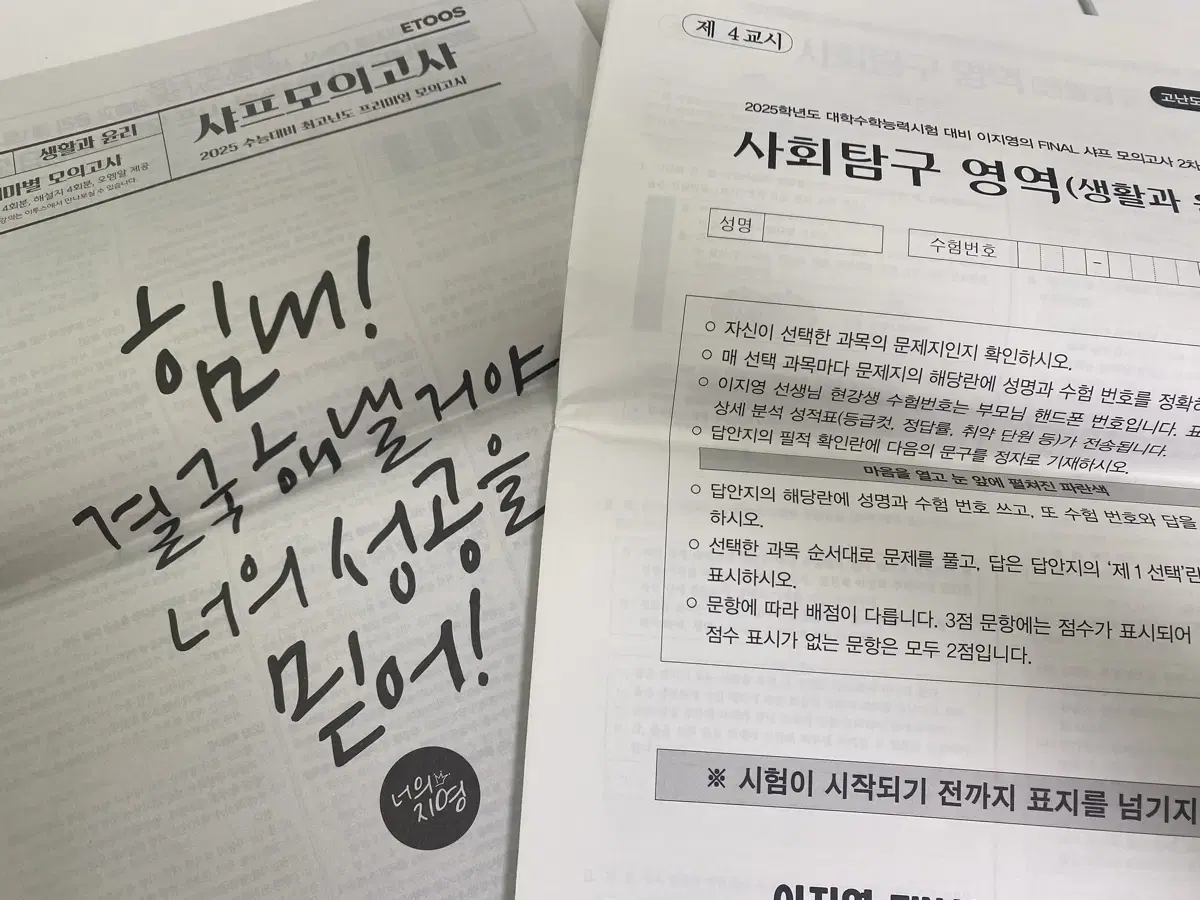 ETOOS
생활과 윤리
샤프모의고사
2025 수능대비 최고난도 프리미엄 모의고사
모의고사
4회분, 해설지 4회분, 오엠알 제공
이투스에서 만나보실 수 있습니다.
힘내!
결국 해낼거야
너의 성공을
믿어!
너의
지영
제 4 교시
고난도
2025학년도 대학수학능력시험 대비 이지영의 FINAL 샤프 모의고사 2차
사회탐구 영역(생활과
성명
수험번호
-
○ 자신이 선택한 과목의 문제지인지 확인하시오.
○ 매 선택 과목마다 문제지의 해당란에 성명과 수험 번호를 정확히
○ 이지영 선생님 현강생 수험번호는 부모님 핸드폰 번호입니다. 표
상세 분석 성적표(등급컷, 정답률, 취약 단원 등)가 전송됩니다.
○ 답안지의 필적 확인란에 다음의 문구를 정자로 기재하시오.
마음을 열고 눈 앞에 펼쳐진 파란색
○ 답안지의 해당란에 성명과 수험 번호 쓰고, 또 수험 번호와 답을
하시오.
○ 선택한 과목 순서대로 문제를 풀고, 답은 답안지의 ‘제1선택’란
표시하시오.
○ 문항에 따라 배점이 다릅니다. 3점 문항에는 점수가 표시되어
점수 표시가 없는 문항은 모두 2점입니다.
※ 시험이 시작되기 전까지 표지를 넘기지
이지영